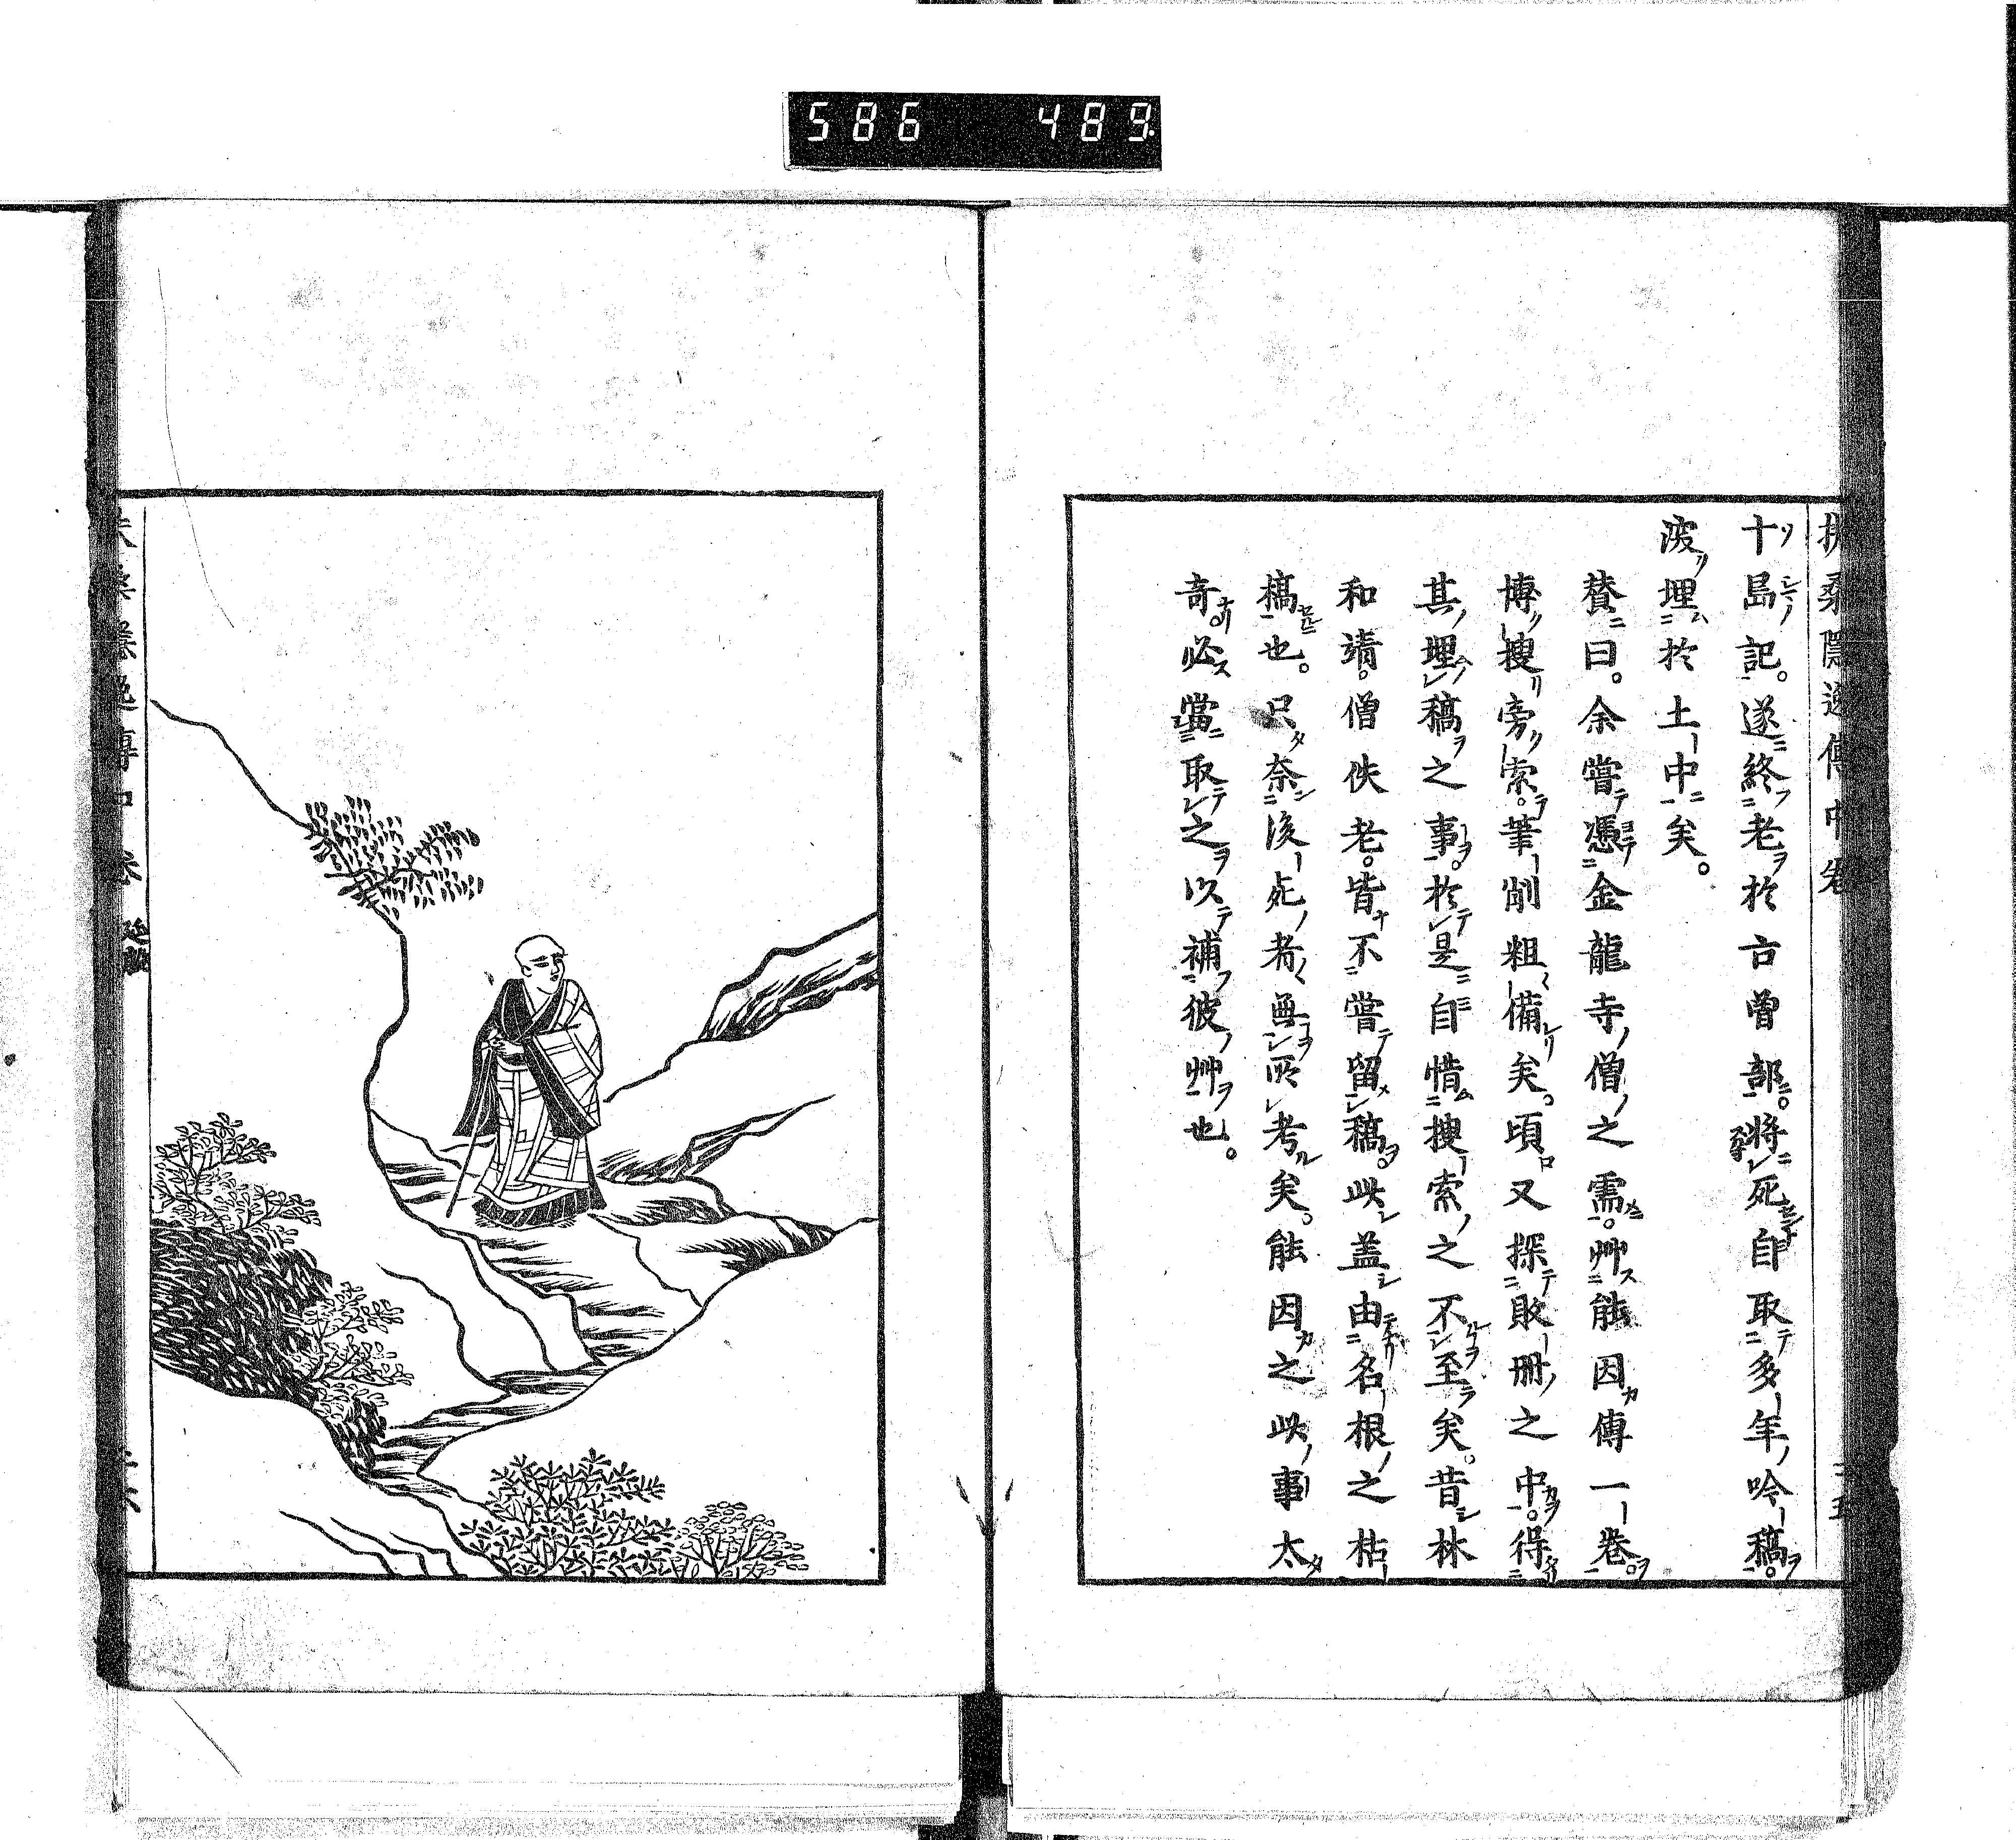 扶桑隱逸傳中卷
十島記。遂終老於古曾部。將死自取多年吟稿。
埋於土中矣。
賛曰。余嘗憑金龍寺僧之需。艸能因傳一卷。
博搜旁索。筆削粗備矣。頃又探敗冊之中。得
其埋稿之事。於是自惜搜索之不至矣。昔林
和靖。僧佚老。皆不嘗留稿。此盖由名根之枯
槁也。只奈後死者無所考矣。能因之此事太
奇。必當取之以補彼艸也。
扶桑隱逸傳中卷
586 489